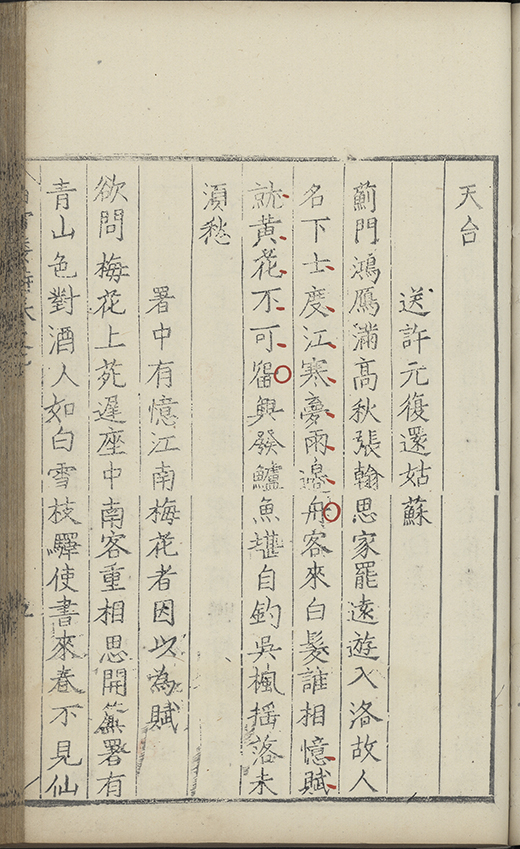 天台
送許元復還姑蘇
薊門鴻鴈滿高秋張翰思家罷遠遊入洛故人
名下士度江寒夢雨邉舟客來白髮誰相憶賦
就黃花不可留興發鱸魚堪自釣吳楓揺落未
湏愁
署中有憶江南梅花者因以為賦
欲問梅花上苑遲座中南客重相思開簾署有
青山色對酒人如白雪枝驛使書來春不見仙